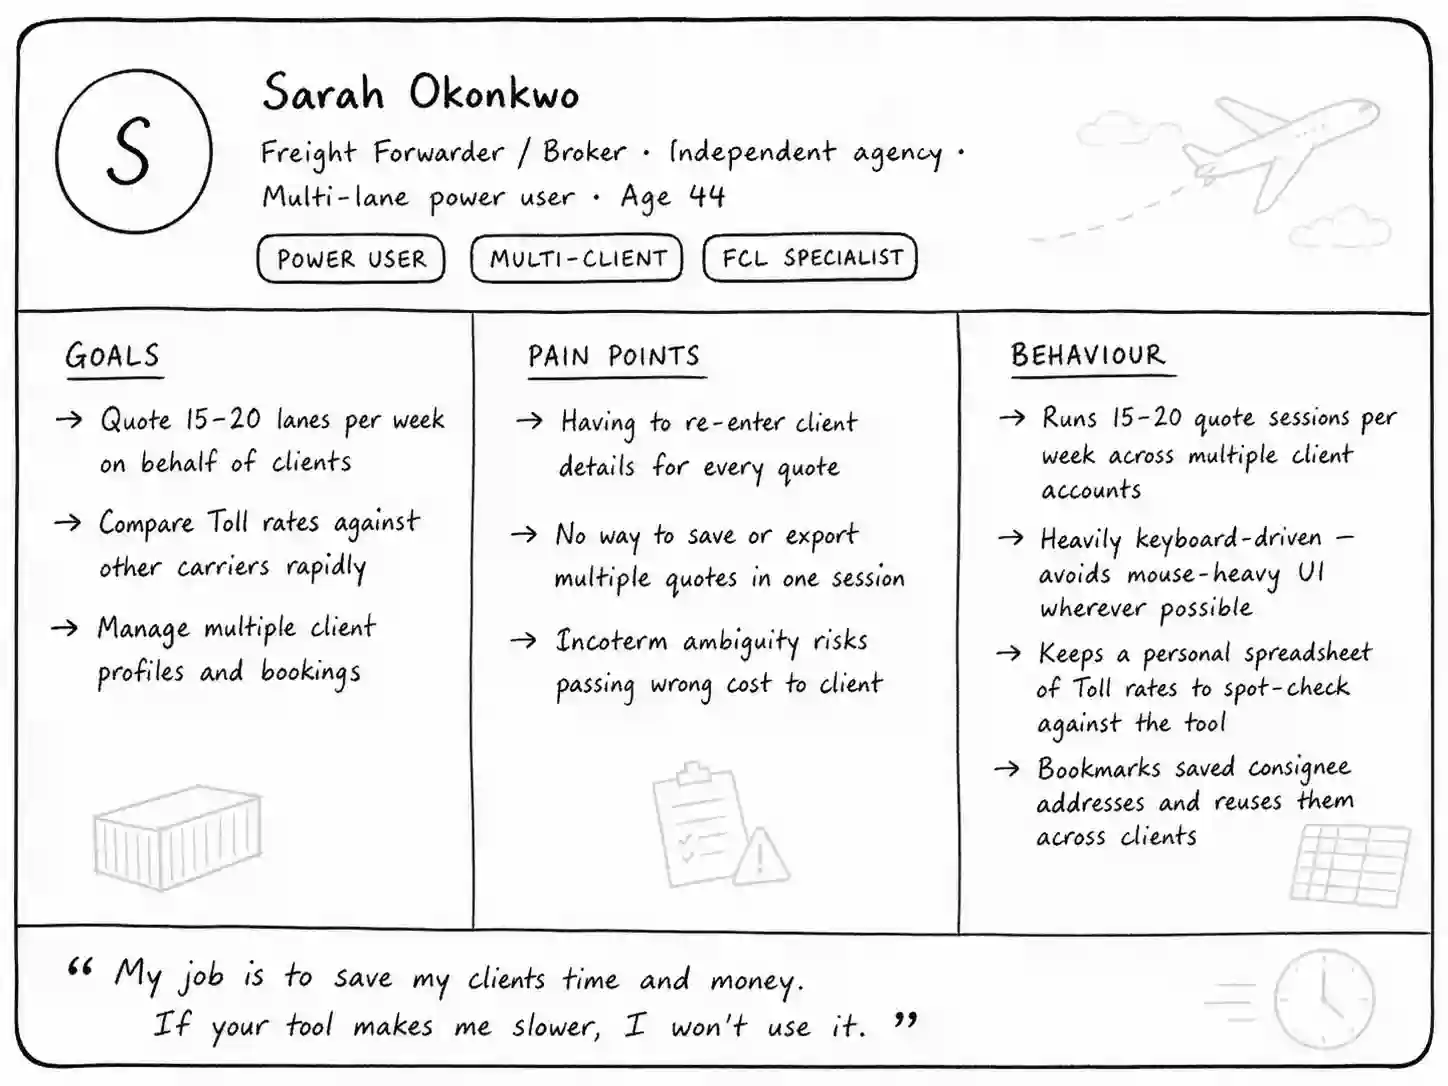 S
Sarah Okonkwo
Freight Forwarder / Broker · Independent agency ·
Multi-lane power user · Age 44
POWER USER
MULTI-CLIENT
FCL SPECIALIST
GOALS
→ Quote 15-20 lanes per week
on behalf of clients
→ Compare Toll rates against
other carriers rapidly
→ Manage multiple client
profiles and bookings
PAIN POINTS
→ Having to re-enter client
details for every quote
→ No way to save or export
multiple quotes in one session
→ Incoterm ambiguity risks
passing wrong cost to client
BEHAVIOUR
→ Runs 15-20 quote sessions per
week across multiple client
accounts
→ Heavily keyboard-driven —
avoids mouse-heavy UI
wherever possible
→ Keeps a personal spreadsheet
of Toll rates to spot-check
against the tool
→ Bookmarks saved consignee
addresses and reuses them
across clients
“ My job is to save my clients time and money.
If your tool makes me slower, I won't use it. ”